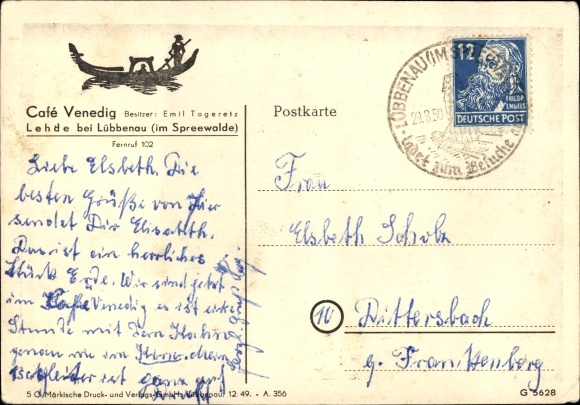 Café Venedig Besitzer: Emil Togeretz
Lehde bei Lübbenau (im Spreewalde)
Fernruf 102
Liebe Elsbeth. Die
besten Grüße von hier
sendet Dir Elisabeth.
Das ist ein herrliches
Stück Erde. Wir sind jetzt
im Kaffe Venedig es ist eine
Stunde mit dem Kahn
genau wie in
ist ganz
5 O. Märkische Druck- und Verlags-GmbH, Lübbenau. 12. 49. - A. 356
Postkarte
LÜBBENAU (IM SPREEWALD)
29.8.50
ladet zum Besuche
12
FRIEDR.
ENGELS
DEUTSCHE POST
Frau
Elsbeth Scholz
10 Dittersbach
b. Frankenberg
G 5628